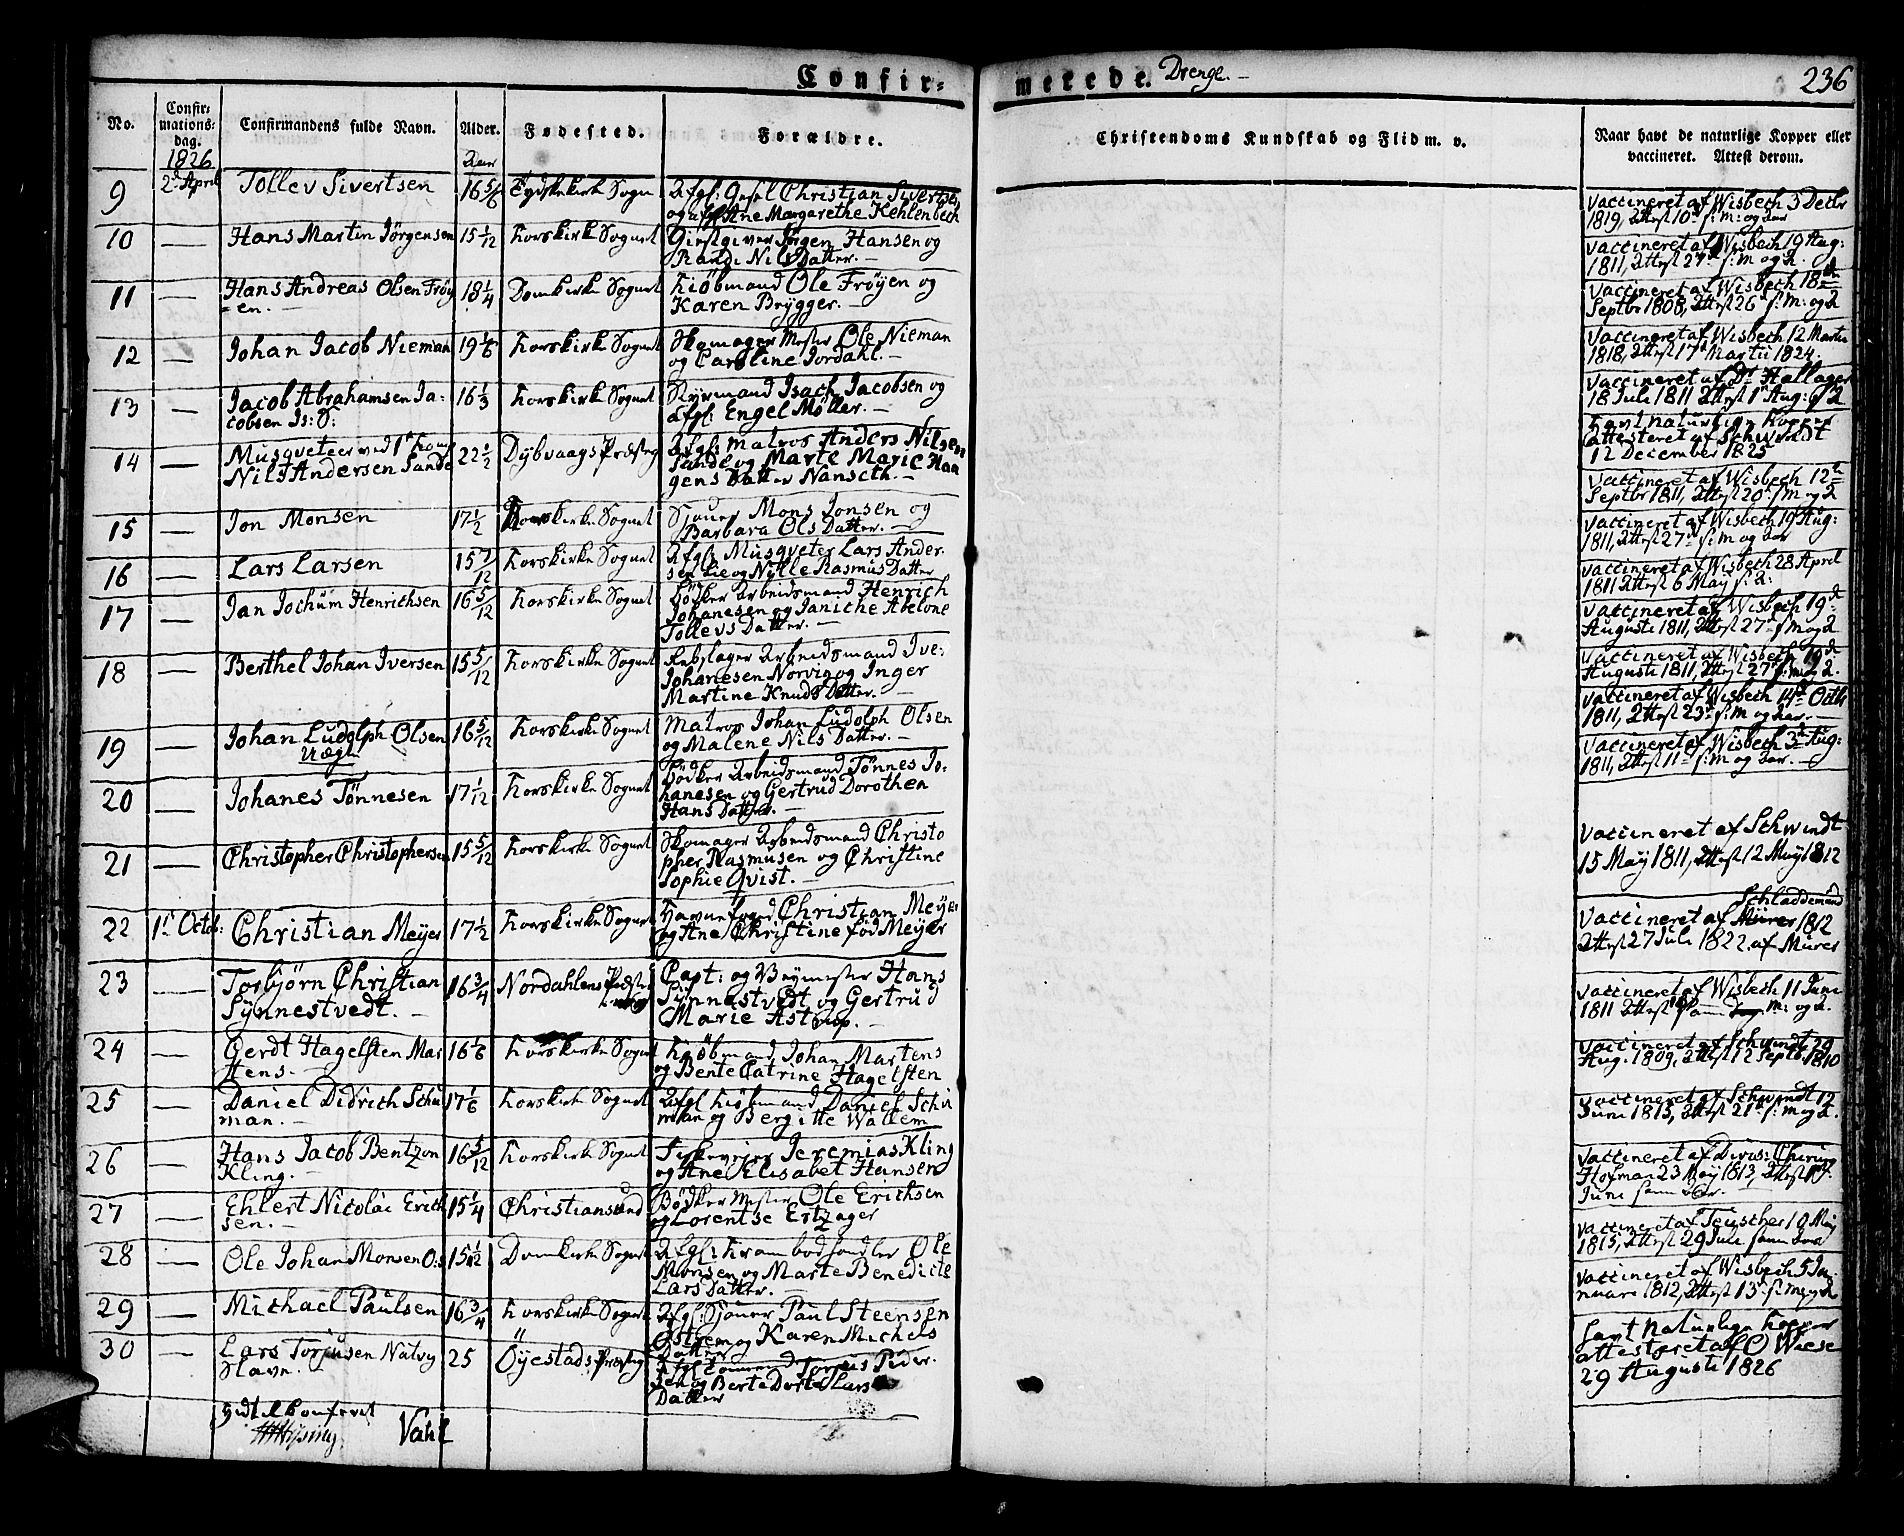 Confir-
merede. Drenge.
236
No.
Confir-
mations-
dag.
Confirmandens fulde Navn.
Alder.
Fødested.
Forældre.
Christendoms Kundskab og Flid m. v.
Naar havt de naturlige Kopper eller
vaccineret. Attest derom.
1826
Aar
9 2d April Tollev Sivertsen 16 5/6 Tydskekirk Sogn Afgl: Christian Sivertsen
og afgl Ane Margarethe Kehlenbech
Vaccineret af Wisbech 3 Decbr
1819, Attest 10 s: M: og Aar
10 — Hans Martin Jörgensen 15 1/12 Korskirke Sognet Giestgiver Jörgen Hansen og
Randi Nils Datter. —
Vaccineret af Wisbech 19 Aug:
1811, Attest 27d s: M og A.
11 — Hans Andreas Olsen Fröy
=en. — 18 1/4 Domkirke Sognet Kiöbmand Ole Fröyen og
Karen Brygger. —
Vaccineret af Wisbech 18de
Septbr 1808, Attest 26 s: M: og A
12 — Johan Jacob Nieman 19 1/6 Korskirke Sognet Skomager Mester Ole Nieman
og Caroline Jordahl. —
Vaccineret af Wisbech 12 Martii
1818, Attest 17d Martii 1824.
13 — Jacob Abrahamsen Ja:
cobsen Is: S: 16 1/3 Korskirke Sognet Styrmand Isach Jacobsen og
Afgl: Engel Möller. —
Vaccineret af Dr Hallager
18 Juli 1811 Attest 1 Aug: s A
14 — Musqueteer ved 1t
Nils Andersen Sande 22 1/2 Dybvaags Præsteg Afgl: Matros Anders Nilsen
Sande og Marte Marie Haa
gens Datter Nanseth. —
havt naturlige Kopper
attesteret af Schwindt
12 December 1825
15 — Jon Monsen 17 1/2 Korskirke Sognet Sjouer Mons Jonsen og
Barbara Ols Datter. —
Vaccineret af Wisbech 12te
Septbr 1811, Attest 20 s: M og A
16 — Lars Larsen 15 7/12 Korskirke Sognet Afgl: Musqveter Lars Ander
sen Lie og Nille Rasmus Datter
Vaccineret af Wisbech 19 Aug:
1811, Attest 27 s: M og Aar
17 — Jan Jochum Henrichsen 16 5/12 Korskirke Sognet Bödker Arbeidsmand Henrich
Johanesen og Janiche Abelone
Tollevs Datter. —
Vaccineret af Wisbech 28 April
1811 Attest 6 May s: A:
18 — Berthel Johan Iversen 15 5/12 Korskirke Sognet Rebslager Arbeidsmand Ive:
Johanesen Norvig og Inger
Martine Knuds Datter. —
Vaccineret af Wisbech 19d
Augusti 1811, Attest 27 s: M og A
19 — Johan Ludolph Olsen
Uægte 16 5/12 Korskirke Sognet Matros Johan Ludolph Olsen
og Malene Nils Datter. —
Vaccineret af Wisbech 19d
Augusti 1811, Attest 27 s: M og A.
20 — Johanes Tönnesen 17 1/12 Korskirke Sognet Bödker Arbeidsmand Tönnes Jo:
hanesen og Gertrud Dorothen
Hans Datter. —
Vaccineret af Wisbech 14d Octbr
1811, Attest 23 s: M og Aar. —
21 — Christopher Christophersen 15 5/12 Korskirke Sognet Skomager Arbeidsmand Christo
pher Rasmusen og Christine
Sophie Qvist. —
Vaccineret af Wisbech 3d Aug:
1811, Attest 11 s: M og Aar. —
22 1t Octob: Christian Meyer 17 1/2 Korskirke Sognet Havnefoged Christian Meye:
og Ane Christine föd Meyer
Vaccineret af Schwindt
15 May 1811, Attest 12 May 1812
23 — Torbjörn Christian
Synnestvedt. — 16 3/4 Nordahlens Præste Capt: og Veymester Hans
Synnestvedt og Gertrud
Marie Astrup. —
Schladdemund
Vaccineret af Mürer 1812
Attest 27 Juli 1822 af Mürer
24 — Gerdt Hagelsten Mar
tens. — 16 1/6 Korskirke Sognet Kiöbmand Johan Martens
og Bente Catrine Hagelsten
Vaccineret af Wisbech 11 Juni
1811 Attest samme M: og A.
25 — Daniel Didrich Schu
man. — 17 1/6 Korskirk Sognet Afgl Kiöbmand Daniel Schu
man og Bergitte Wallem
Vaccineret af Schwindt 29
Aug: 1809, Attest 12 Septbr 1810
26 — Hans Jacob Bentzon
Kling. — 16 5/12 Korskirk Sognet Jeremias Kling
og Ane Elisabet Hansen
Vaccineret af Schwindt 12
Juni 1813, Attest 21 s: M og A.
27 — Ehlert Nicolai Erich
sen. — 15 1/4 Christiansund Bödker Mester Ole Erichsen
og Lorentse Ertzager
Vaccineret af Divis: Chirurg
Hofman 23 May 1813, Attest 19
Juni samme Aar.
28 — Ole Johan Monsen O:s 15 1/12 Domkirke Sognet Afgl: Krambodhandler Ole
Monsen og Marte Benedicte
Lars Datter. —
Vaccineret af Teuscher 10 May
1815, Attest 29 Juli samme Aar
29 — Michael Paulsen 16 3/4 Korskirk Sognet Afgl: Sjouer Paul Steensen
Östrem og Karen Michels
Datter
Vaccineret af Wisbech 5 Ja
nuari 1812, Attest 13 s: M og A
30 — Lars Torjusen Natvig
Slavn. — 25 Öyestads Præsteg Afgl: Torjus Peder
sen og Berte Dorte Lars
Datter
havt Naturlige Kopper
attesteret af O Wiese
29 Augusti 1826
Vahl